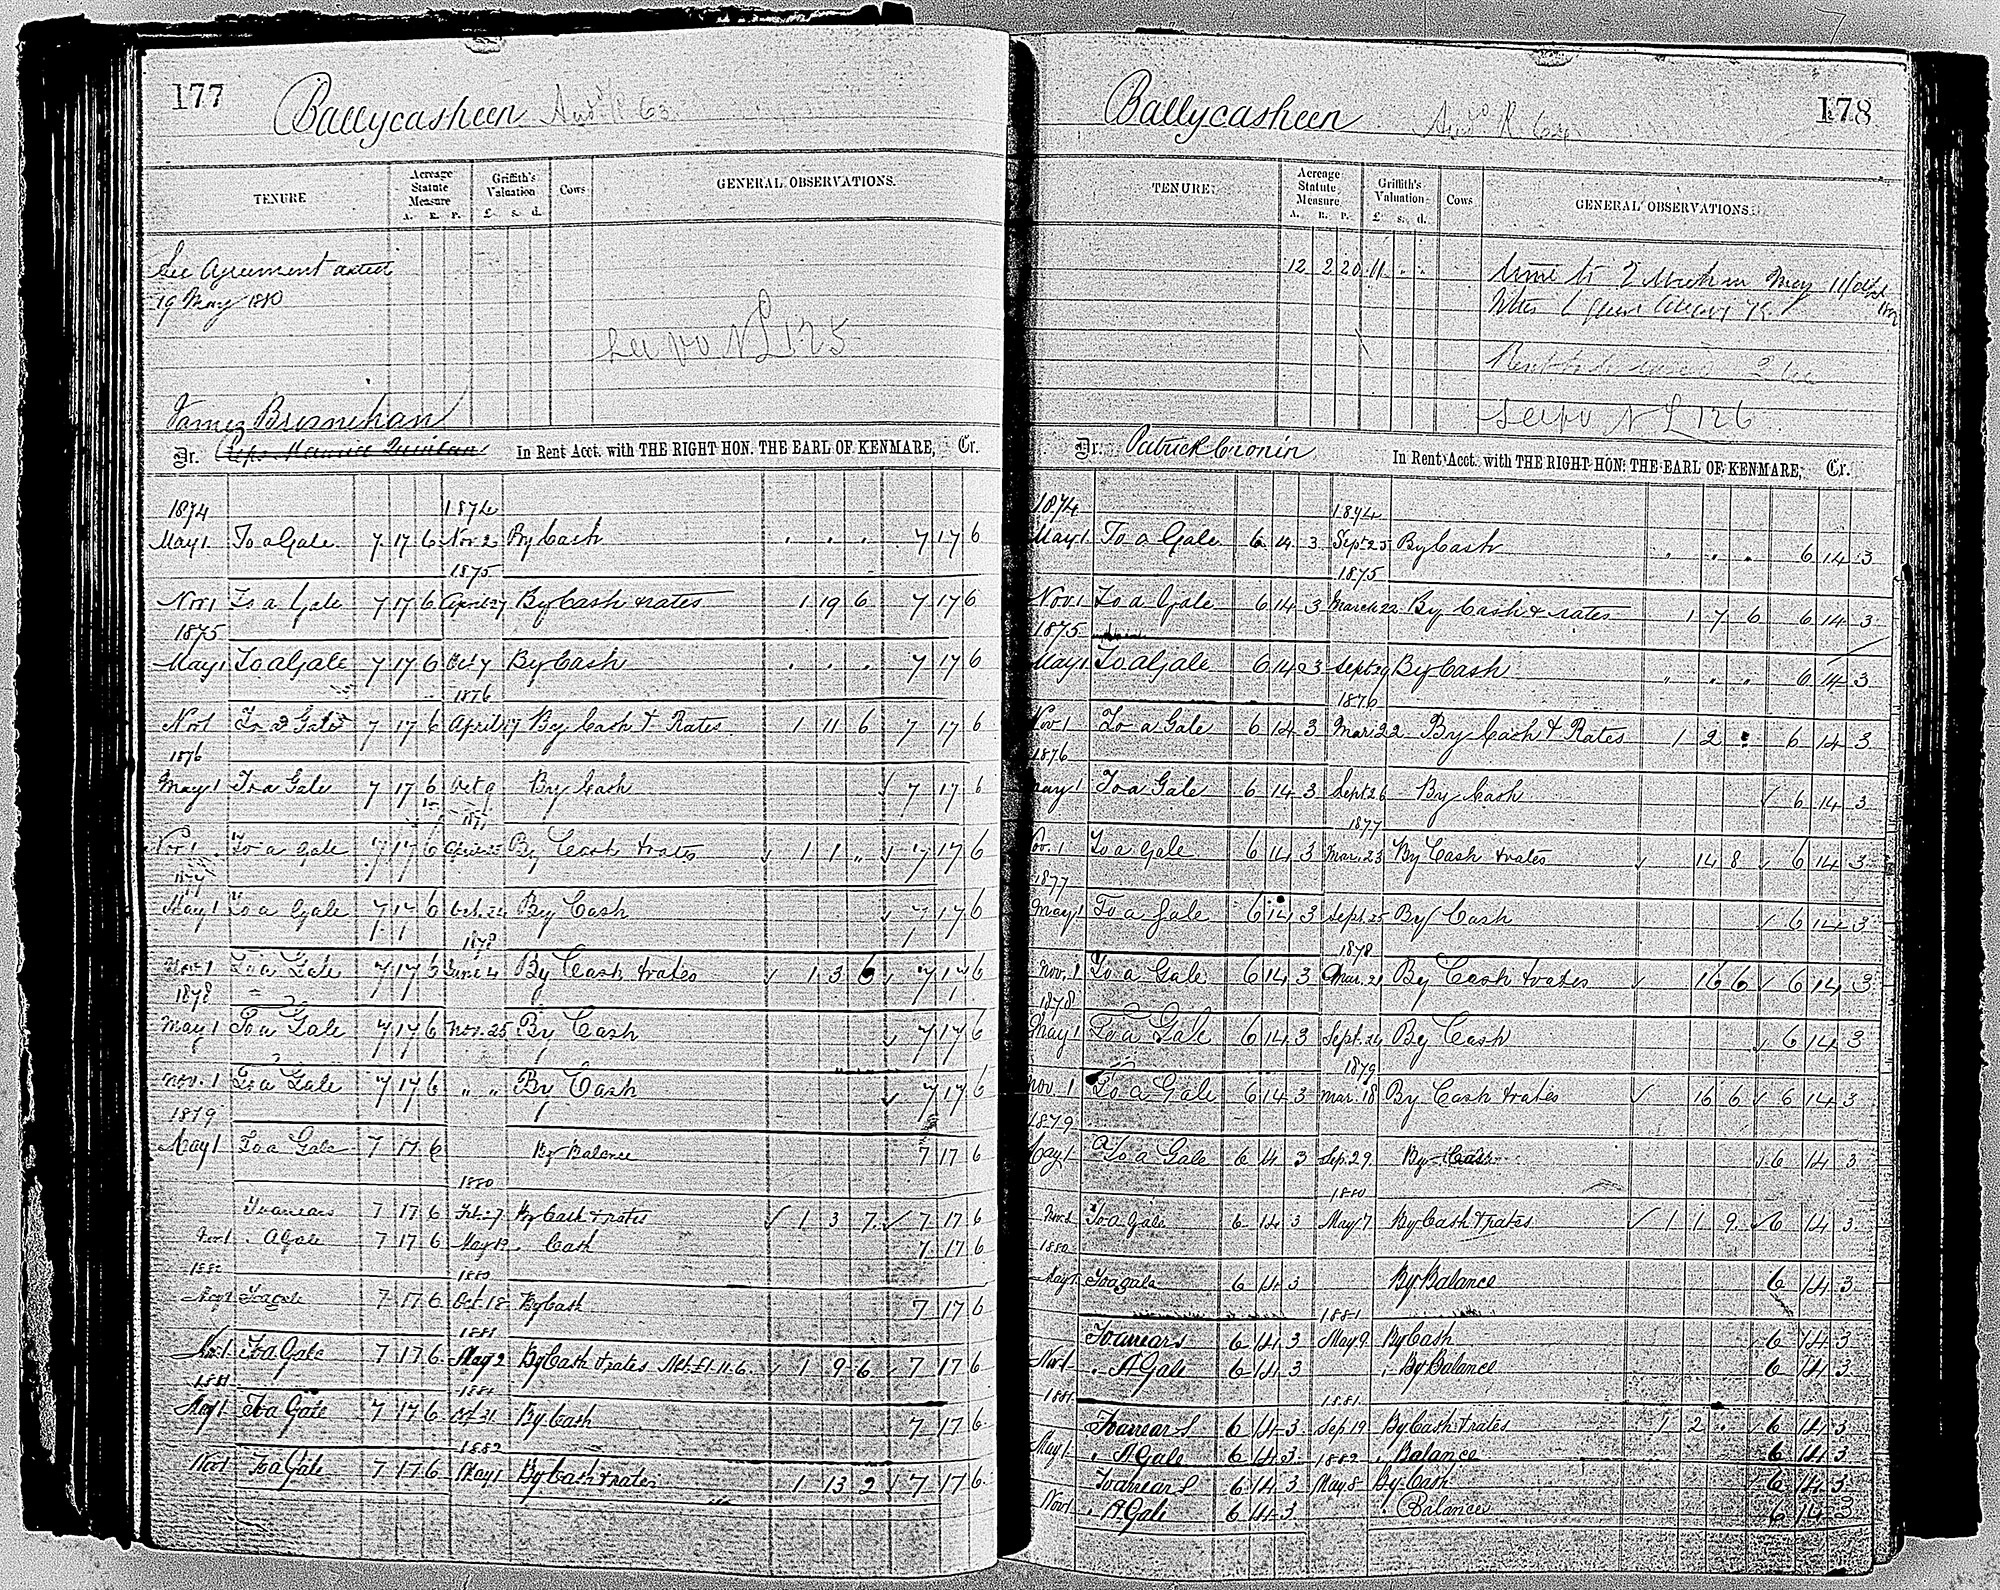 177
Ballycasheen
TENURE
Acreage Statute Measure
A. R. P.
Griffith's Valuation
£ s. d.
Cows
GENERAL OBSERVATIONS.
See Agreement
19 May 1880
James Bresnihan
Dr. Reps Maurice Quinlan In Rent Acct. with THE RIGHT HON. THE EARL OF KENMARE, Cr.
1874 1874
May 1 To a Gale 7 17 6 Nov 2 By Cash . . . 7 17 6
1875
Nov 1 To a Gale 7 17 6 April 27 By Cash & rates 1 19 6 7 17 6
1875
May 1 To a Gale 7 17 6 Oct 7 By Cash . . . 7 17 6
1876
Nov 1 To a Gale 7 17 6 April 17 By Cash & Rates 1 11 6 7 17 6
1876
May 1 To a Gale 7 17 6 Oct 9 By Cash 7 17 6
1877
Nov 1 To a Gale 7 17 6 By Cash & rates 1 1 " 7 17 6
1877
May 1 To a Gale 7 17 6 Oct. 24 By Cash 7 17 6
1878
Nov. 1 To a Gale 7 17 6 June 4 By Cash & rates 1 3 6 7 17 6
1878
May 1 To a Gale 7 17 6 Nov. 25 By Cash 7 17 6
Nov. 1 To a Gale 7 17 6 " " By Cash 7 17 6
1879
May 1 To a Gale 7 17 6 By Balance 7 17 6
1880
To arrears 7 17 6 Feb 7 By Cash & rates 1 3 7 7 17 6
Nov 1 . A Gale 7 17 6 May 19 . Cash 7 17 6
1880 1880
May 1 To a gale 7 17 6 Oct 18 By Cash 7 17 6
1881
Nov 1 To a Gale 7 17 6 May 2 By Cash & rates 1 9 6 7 17 6
1881 1881
May 1 To a Gale 7 17 6 Oct 31 By Cash 7 17 6
1882
Nov 1 To a Gale 7 17 6 May 1 By Cash & rates 1 13 2 7 17 6
178
Ballycasheen
TENURE
Acreage Statute Measure
A. R. P.
Griffith's Valuation
£ s. d.
Cows
GENERAL OBSERVATIONS
12 2 20 11 " "
Dr. Patrick Cronin In Rent Acct. with THE RIGHT HON. THE EARL OF KENMARE, Cr.
1874 1874
May 1 To a Gale 6 14 3 Sept 25 By Cash " " " 6 14 3
1875
Nov. 1 To a Gale 6 14 3 March 22 By Cash & rates 1 7 6 6 14 3
1875
May 1 To a Gale 6 14 3 Sept 29 By Cash " " " 6 14 3
1876
Nov 1 To a Gale 6 14 3 Mar 22 By Cash & Rates 1 2 6 14 3
1876
May 1 To a Gale 6 14 3 Sept 26 By Cash 6 14 3
1877
Nov. 1 To a Gale 6 14 3 Mar. 23 By Cash & rates 14 8 6 14 3
1877
May 1 To a Gale 6 14 3 Sept. 25 By Cash 6 14 3
1878
Nov. 1 To a Gale 6 14 3 Mar. 21 By Cash & rates 16 6 6 14 3
1878
May 1 To a Gale 6 14 3 Sept. 24 By Cash 6 14 3
1879
Nov. 1 To a Gale 6 14 3 Mar. 18 By Cash & rates 16 6 6 14 3
1879
May 1 To a Gale 6 14 3 Sep. 29 By Cash 6 14 3
1880
Nov 1 To a Gale 6 14 3 May 7 By Cash & rates 1 1 9 6 14 3
1880
May 1 To a gale 6 14 3 By Balance 6 14 3
1881
To arrears 6 14 3 May 9 By Cash 6 14 3
Nov 1 . A Gale 6 14 3 . By Balance 6 14 3
1881 1881
To arrears 6 14 3 Sep 19 By Cash & rates 1 2 .. 6 14 3
May 1 . A Gale 6 14 3 . Balance 6 14 3
1882
To arrears 6 14 3 May 8 By Cash 6 14 3
Nov 1 . A Gale 6 14 3 Balance 6 14 3